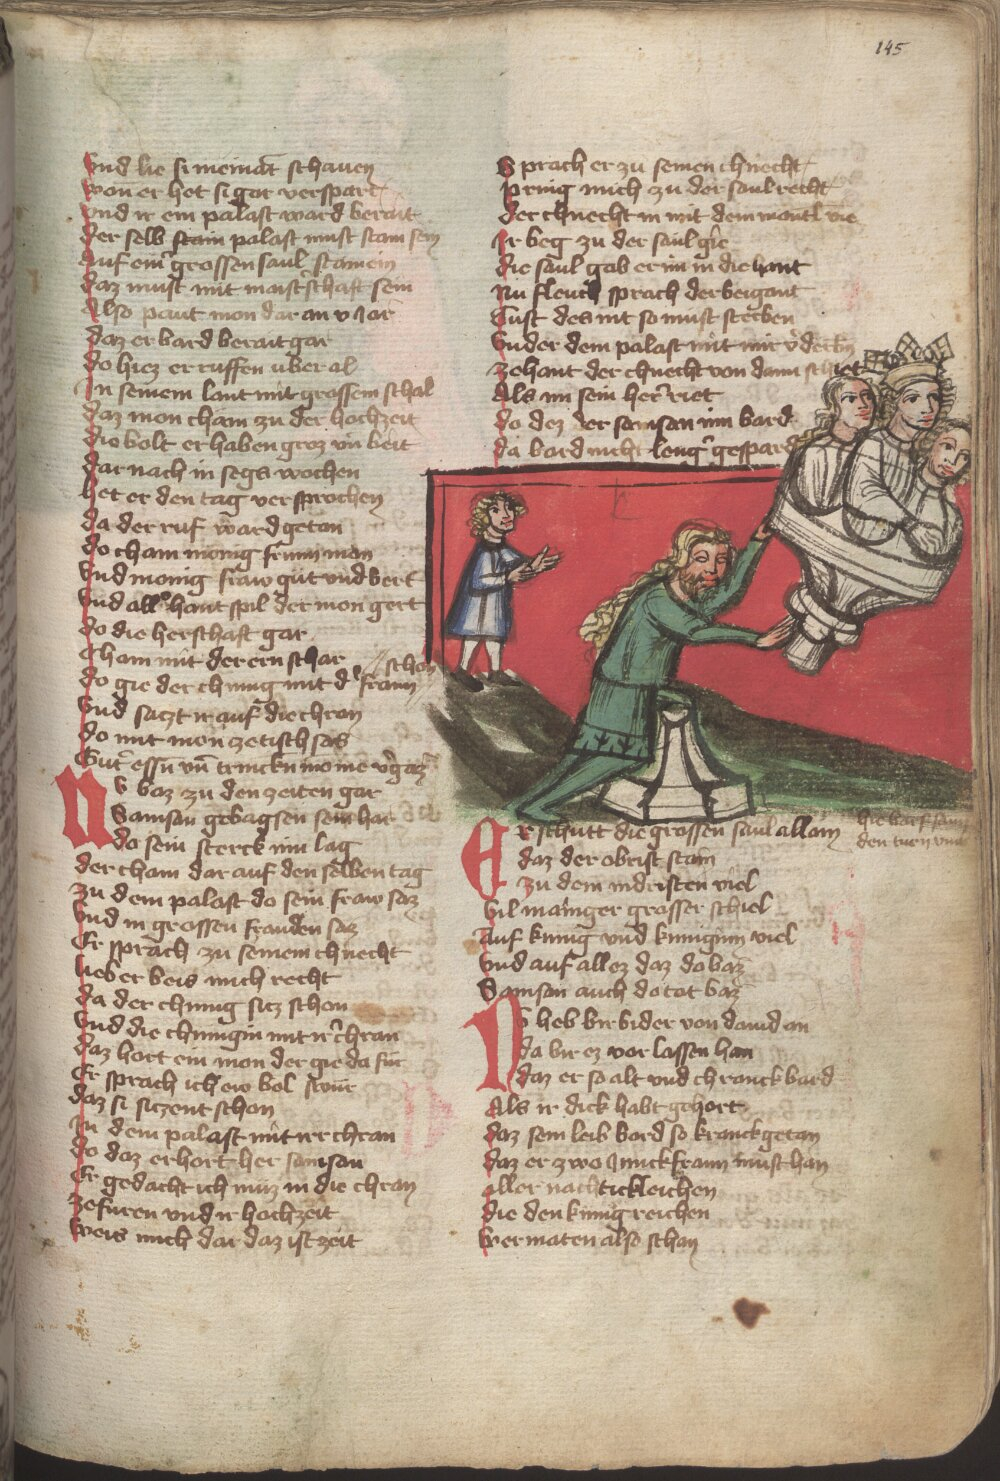 145
Vnd lie si nieman schauen
wan er het si gar verspart
vnd ir ein palast ward berait
der selb stain palast must stain sein
auf eim grossen saul stainein
daz must mit maisterschaft sein
Also paut mon dar an v iar
daz er bard berait gar
do hiez er ruffen uber al
In seinem lant mit grossem schal
daz mon cham zu der hochzeit
die bolt er haben groz vnd beit
dar nach in segs wochen
het er den tag versprochen
da der ruf ward getan
do cham monig frum man
Vnd monig fraw gut vnd bert
Vnd aller hant spil der mon gert
do die herschaft gar
Cham mit der ern schar
do gie der chunig mit der frawn schon
Vnd saczt ir auf die chron
do mit mon ze tisch sas
Guter essn vnd trinckn mo nie vergaz
Nv baz zu den zeiten gar
Samson gebagsen sein har
do sein sterck inn lag
der cham dar auf den selben tag
zu dem palast do sein fraw saz
Vnd in grossen frauden saz
Er sprach zu seinem chnecht
lieber beis mich recht
da der chunig sicz schon
Vnd die chunigin mit ir chran
daz hort ein mon der gie da für
Er sprach ich ew bol
daz si siczent schon
In dem palast mit irr chran
do daz erhort her samson
Er gedacht ich muz in die chron
zefuren vnd ir hochzeit
weis mich dar daz ist zeit
Sprach er zu seinen chnecht
pring mich zu der saul recht
der chnecht in mit dem mantl vie
Ir beg zu der saul gie
die saul gab er im in die hant
Nu fleuch sprach der beigant
Tust des nit so must sterben
Vnder dem palast mit mir verderbn
zehant der chnecht von dann schiet
Als im sein herr riet
do dez der samson inn bard
da bard nicht lenger gespard
hie barf sam
den turn vm
Er schutt die grossen saul allain
daz der obrist stain
zu dem nidristen viel
Vil mainger grosser schiel
Auf kunig vnd kunigin viel
Vnd auf allez daz do baz
Samson auch do tot baz
Nv heb bir bider von dauid an
da bir ez vor lassen han
daz er so alt vnd chranck bard
Als ir dick habt gehort
daz sein leib bard so kranck getan
daz er zwo iunckfrawn must han
aller nachtickleichen
die den kunig reichen
wermaten also schon